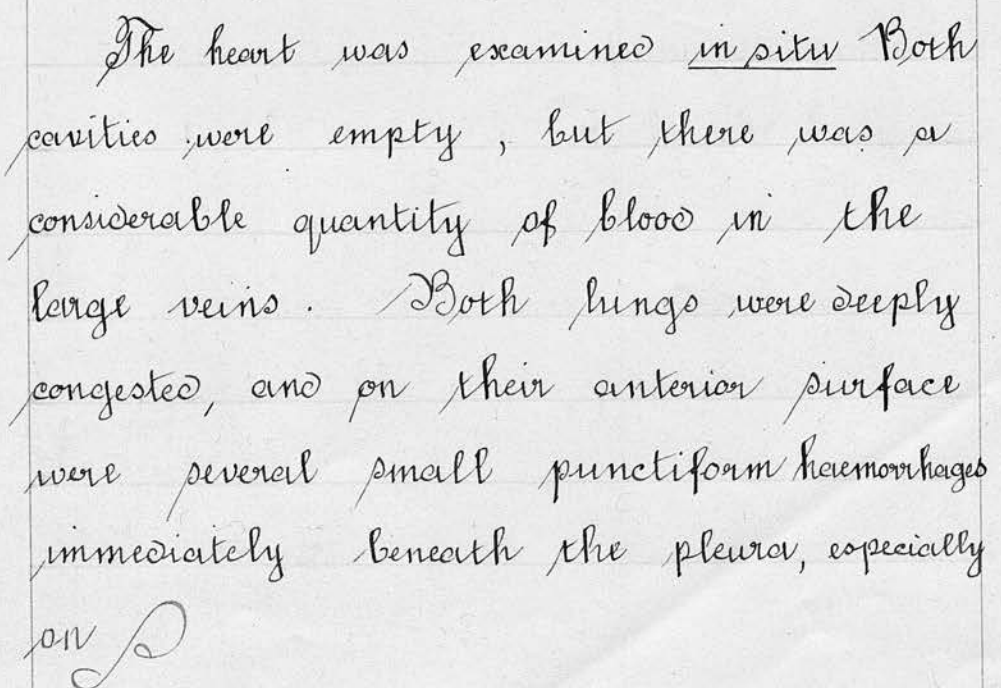 The heart was examined in situ Both
cavities were empty, but there was a
considerable quantity of blood in the
large veins. Both lungs were deeply
congested, and on their anterior surface
were several small punctiform haemorrhages
immediately beneath the pleura, especially
on